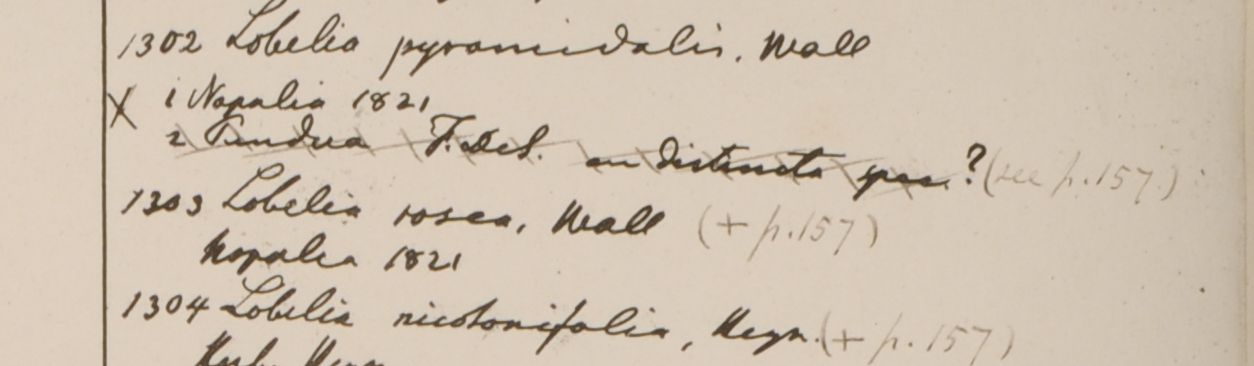 1302 Lobelia pyramidalis, Wall
X 1 Napalia 1821
2 Pundua F. De S. an distincta spec.? (see p.157.)
1303 Lobelia rosea, Wall (+ p.157)
Napalia 1821
1304 Lobelia nicotonifolia, Heyn. (+ p.157)
Herb. Heyn